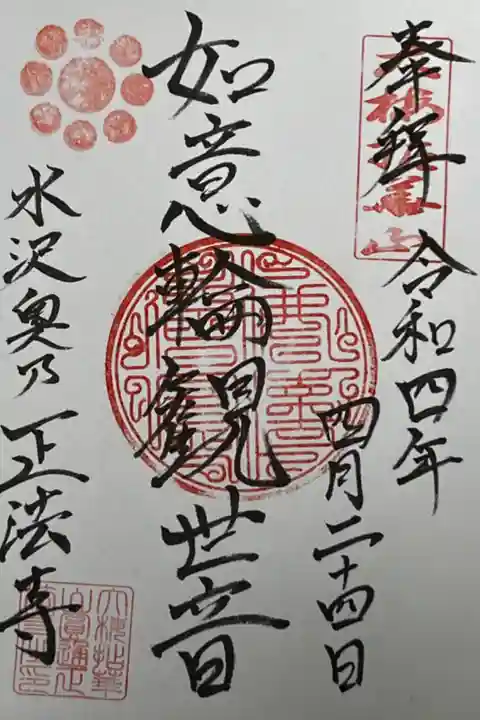 奉拝
令和四年
四月二十四日
如意輪観世音
水沢奥乃正法寺